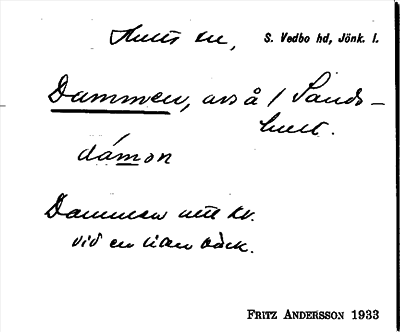 Hults sn, S. Vedbo hd, Jönk. l.
Dammen, avs å / Sands-
hult.
dámon
Dammen
vid en liten bäck.
FRITZ ANDERSSON 1933